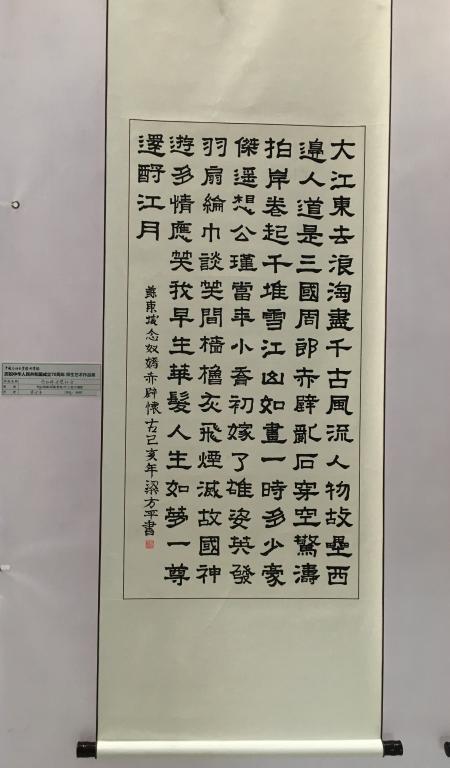 大江東去浪淘盡千古風流人物故壘西
邊人道是三國周郎赤壁亂石穿空驚濤
拍岸卷起千堆雪江山如畫一時多少豪
傑遥想公瑾當年小喬初嫁了雄姿英發
羽扇綸巾談笑間檣櫓灰飛煙滅故國神
遊多情應笑我早生華髮人生如夢一尊
還酹江月
蘇東坡念奴嬌赤壁懷古己亥年梁方平書
庆祝中华人民共和国成立70周年 师生艺术作品展